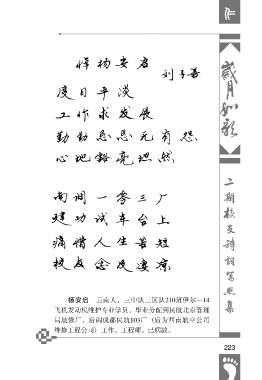 悼杨安启
刘子善
度日平淡
工作求发展
勤勤恳恳无有怨
心地豁亮坦然
南调一零三厂
建功试车台上
痛惜人生苦短
校友念及凄凉
杨安启 云南人，三中队二区队210班伊尔—14
飞机发动机维护专业学员。毕业分配到民航北京管理
局航修厂，后调成都民航103厂（后为西南航空公司
维修工程公司）工作。工程师。已病故。
岁月如歌
二期校友诗词写照集
223